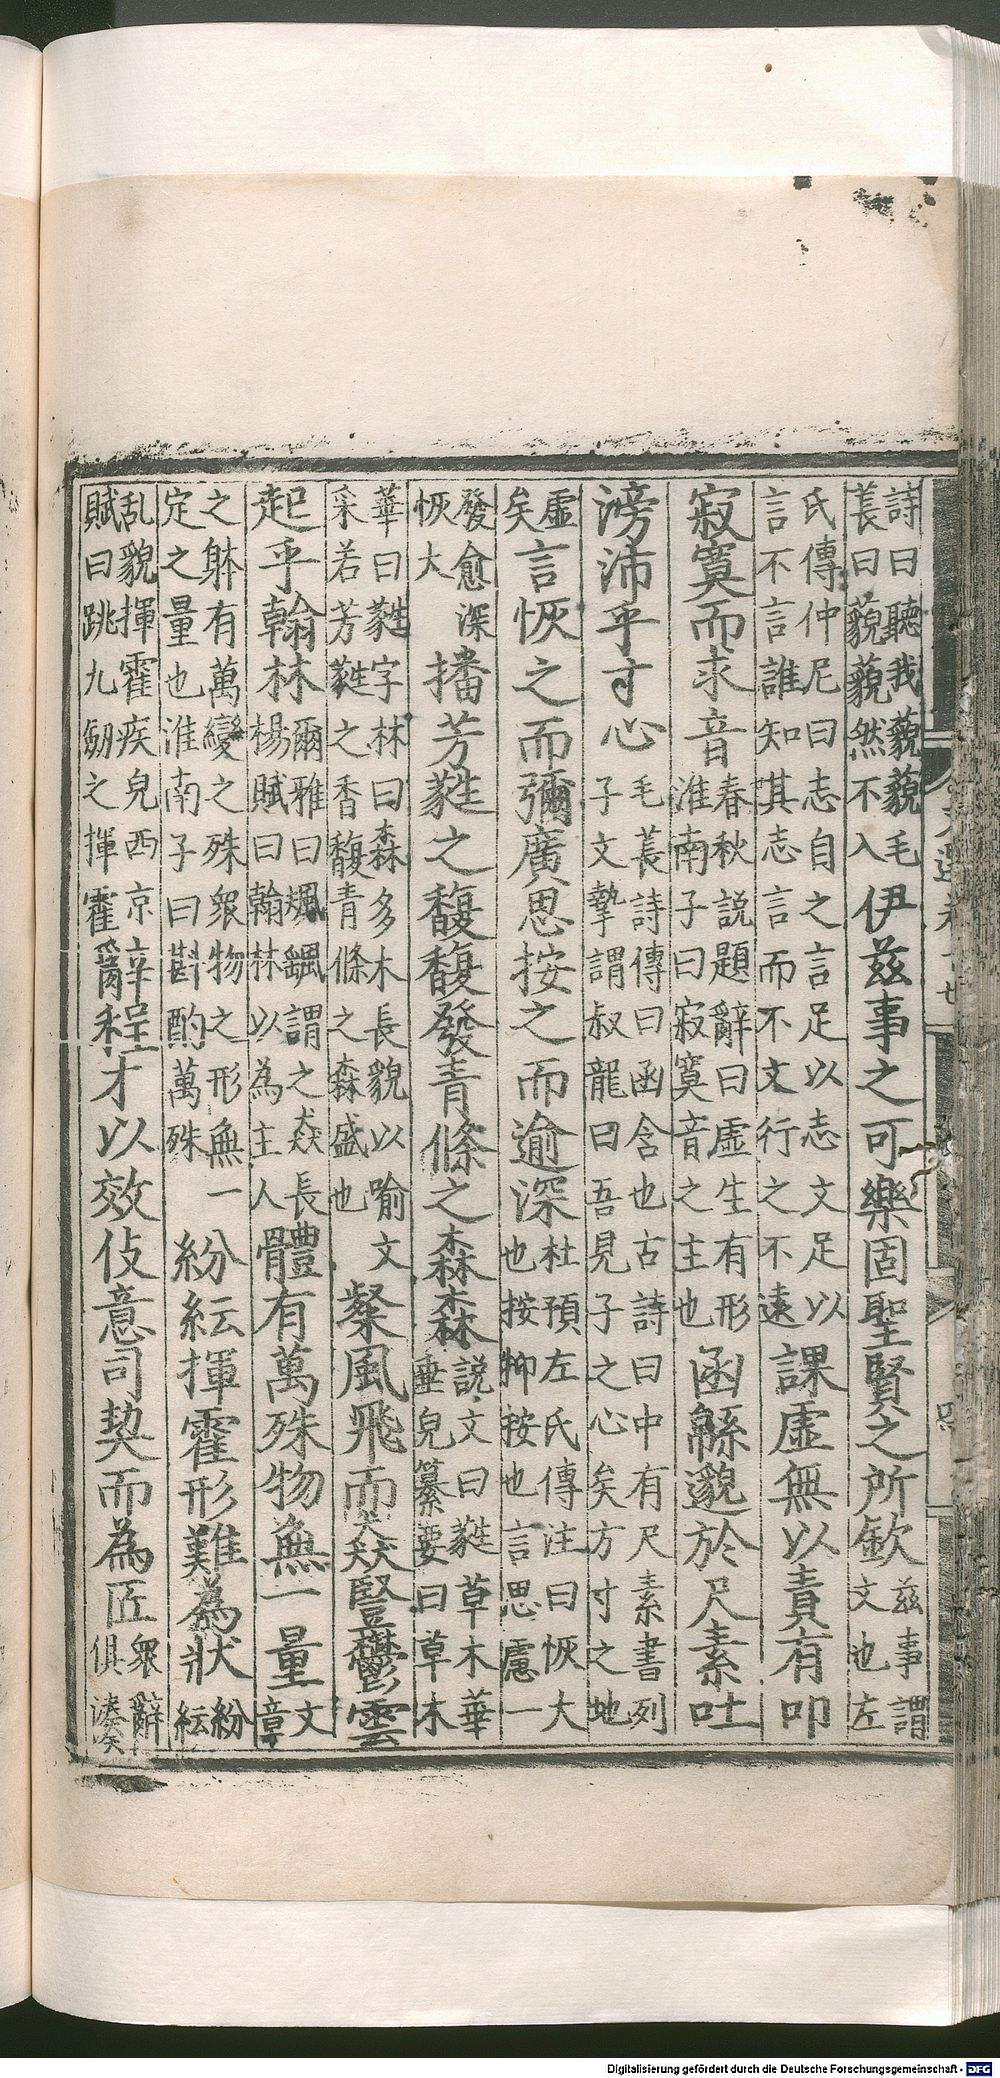 詩曰聽我藐藐毛萇曰藐藐然不入伊茲事之可樂固聖賢之所欽茲事謂文也左
氏傳仲尼曰志自之言足以志文足以言不言誰知其志言而不文行之不遠課虛無以責有叩
寂寞而求音春秋説題辭曰虛生有形淮南子曰寂寞音之主也函緜邈於尺素吐
滂沛乎寸心毛萇詩傳曰函含也古詩曰中有尺素書列子文摯謂叔龍曰吾見子之心矣方寸之地
虛矣言恢之而彌廣思按之而逾深杜預左氏傳注曰恢大也按抑按也言思慮一
發愈深恢大播芳蕤之馥馥發青條之森森説文曰蕤草木華垂皃纂要曰草木
華曰蕤字林曰森多木長貌以喻文采若芳蕤之香馥青條之森盛也粲風飛而猋豎鬱雲
起乎翰林爾雅曰謂之猋長楊賦曰翰林以為主人體有萬殊物無一量文章
之躰有萬變之殊衆物之形無一定之量也淮南子曰斟酌萬殊紛紜揮霍形難為狀紛紜
乱貌揮霍疾皃西京賦曰跳九劒之揮霍辭程才以效伎意司契而為匠衆辭俱湊
Digitalisierung gefördert durch die Deutsche Forschungsgemeinschaft - DFG